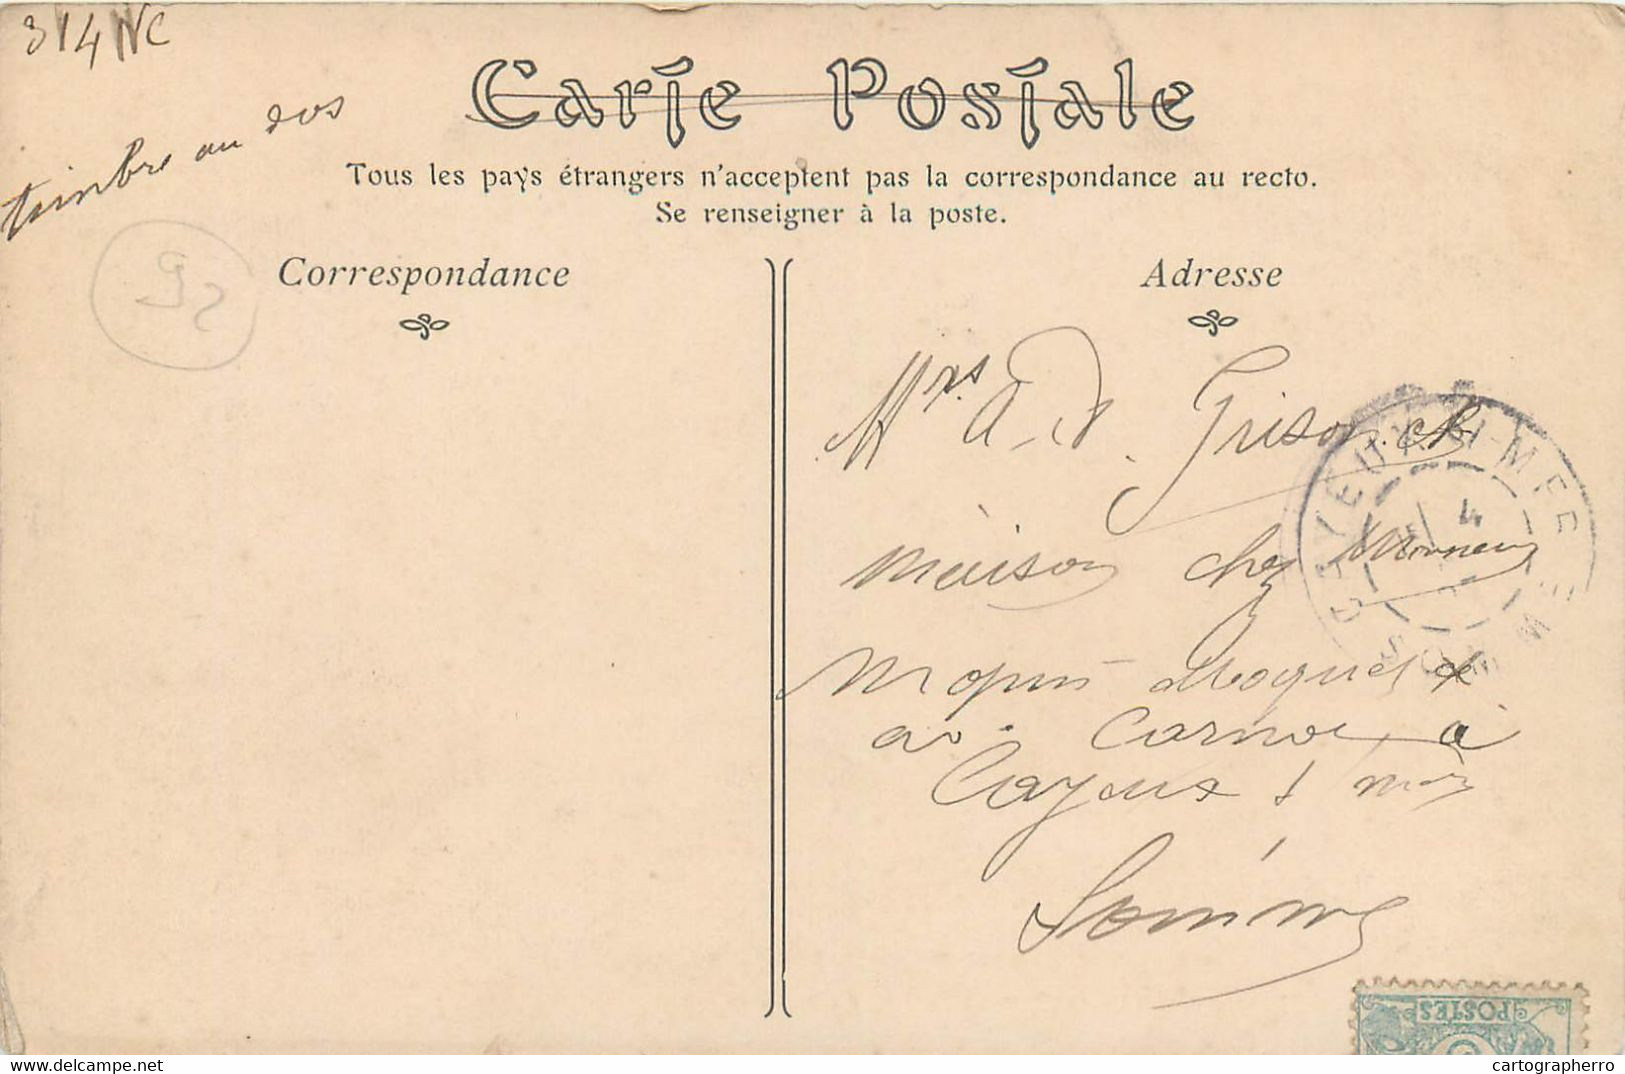 314 NC
timbre au dos
Carte Postale
Tous les pays étrangers n'acceptent pas la correspondance au recto.
Se renseigner à la poste.
Correspondance
Adresse
92
Mrs A. D.
maison chez Monsieur
av. Carnot à
Cayeux s mer
Somme
CAYEUX-S-MER
SOMME
4
POSTES
delcampe.net
cartographerro